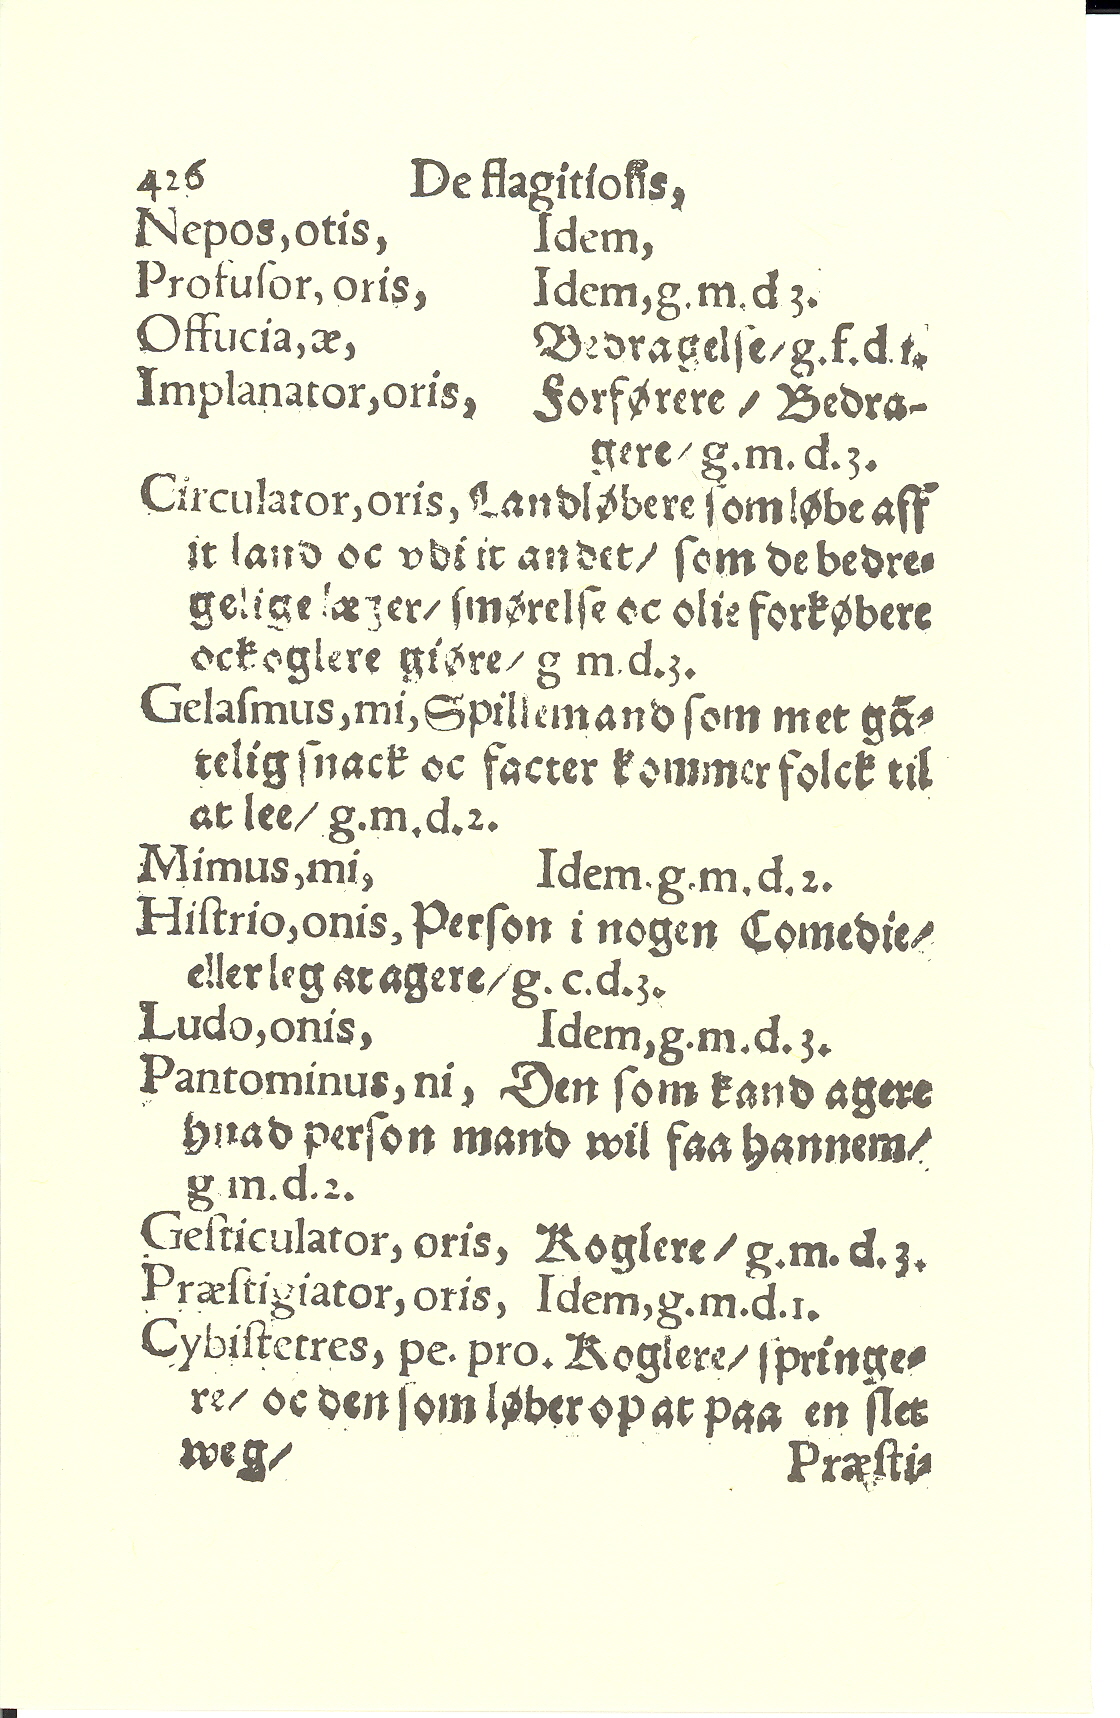 426 De flagitioſis,
Nepos, otis, Idem,
Profuſor, oris, Idem, g. m. d 3.
Offucia, æ, Bedragelſe/ g. f. d. 1.
Implanator, oris, Forførere / Bedra-
gere/ g. m. d. 3.
Circulator, oris, Landløbere ſom løbe aff
it land oc vdi it andet/ ſom de bedre-
gelige læger/ ſmørelſe oc olie forkøbere
oc koglere giøre/ g m. d. 3.
Gelaſmus, mi, Spillemand ſom met gā-
telig ſnack oc facter kommer folck til
at lee/ g. m. d. 2.
Mimus, mi, Idem. g. m. d. 2.
Hiſtrio, onis, Perſon i nogen Comedie/
eller leg at agere/ g. c. d. 3.
Ludo, onis, Idem, g. m. d. 3.
Pantominus, ni, Den ſom kand agere
huad perſon mand wil faa hannem/
g m. d. 2.
Geſticulator, oris, Koglere/ g. m. d. 3.
Præſtigiator, oris, Idem, g. m. d. 1.
Cybiſtetres, pe. pro. Koglere/ ſpringe-
re/ oc den ſom løber op at paa en ſlet
weg/ Præſti-